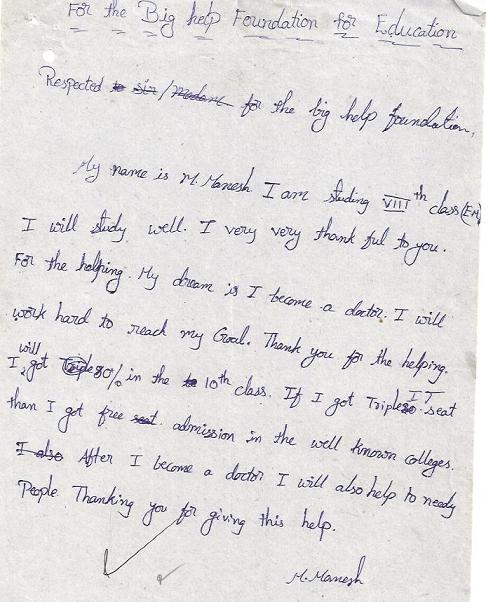 For the Big help Foundation for Education
Respected to sir / madam for the big help foundation,
My name is M. Manesh I am studing VIIIth class (EM)
I will study well. I very very thank ful to you.
For the halping. My dream is I become a doctor. I will
work hard to reach my Goal. Thank you for the helping.
will
I got 80% in the to 10th class. If I got Triple IT seat
than I got free seat admission in the well known colleges.
I also After I become a doctor I will also help to needy
People. Thanking you for giving this help.
M. Manesh